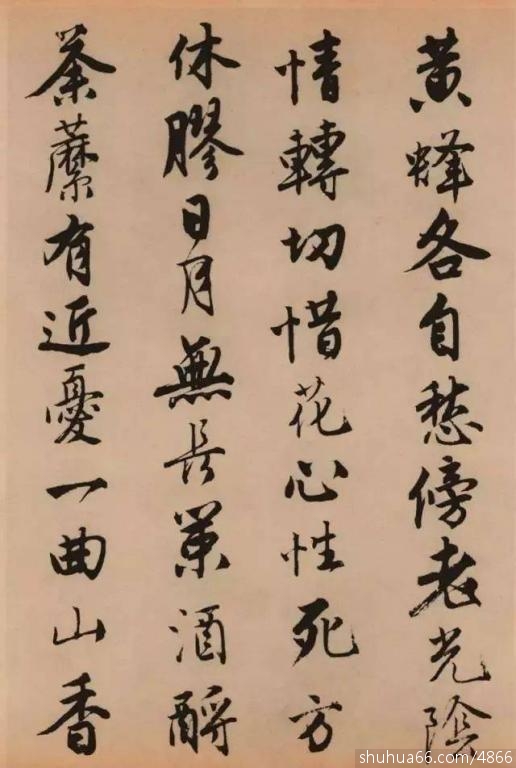 黄蜂各自愁傍老光陰
情轉切惜花心性死方
休膠日月無長策酒酹
荼蘼有近憂一曲山香
shuhua66.com/4866